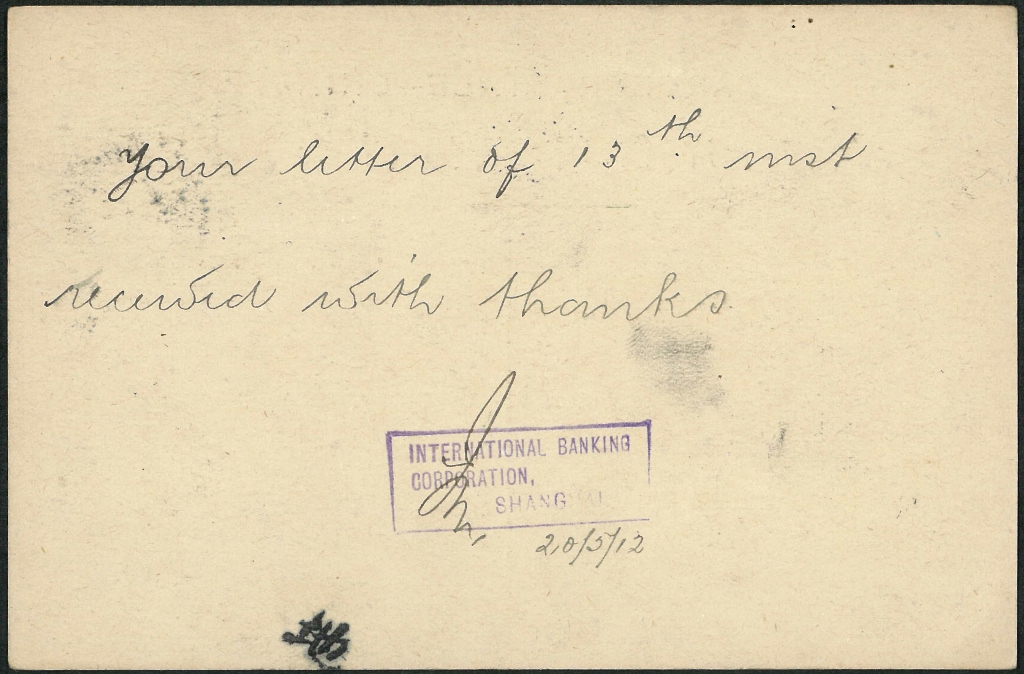 Your letter of 13th inst
received with thanks.
INTERNATIONAL BANKING
CORPORATION,
SHANGHAI
20/5/12